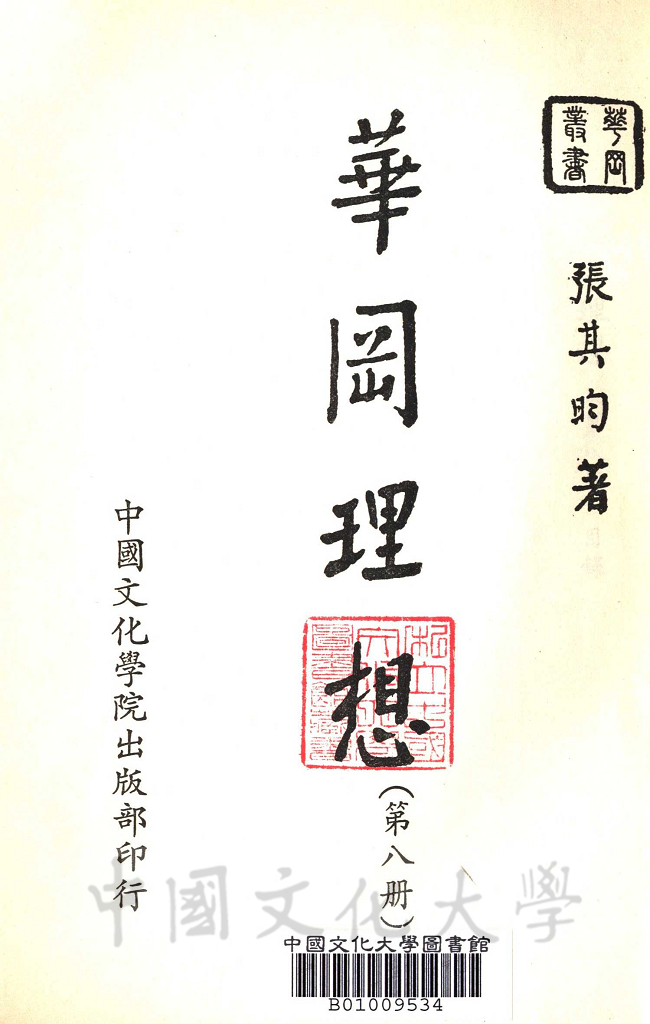 華岡
叢書
張其昀著
華岡理想
（第八册）
中國文化學院出版部印行
中國文化大學
中國文化大學圖書館
B01009534